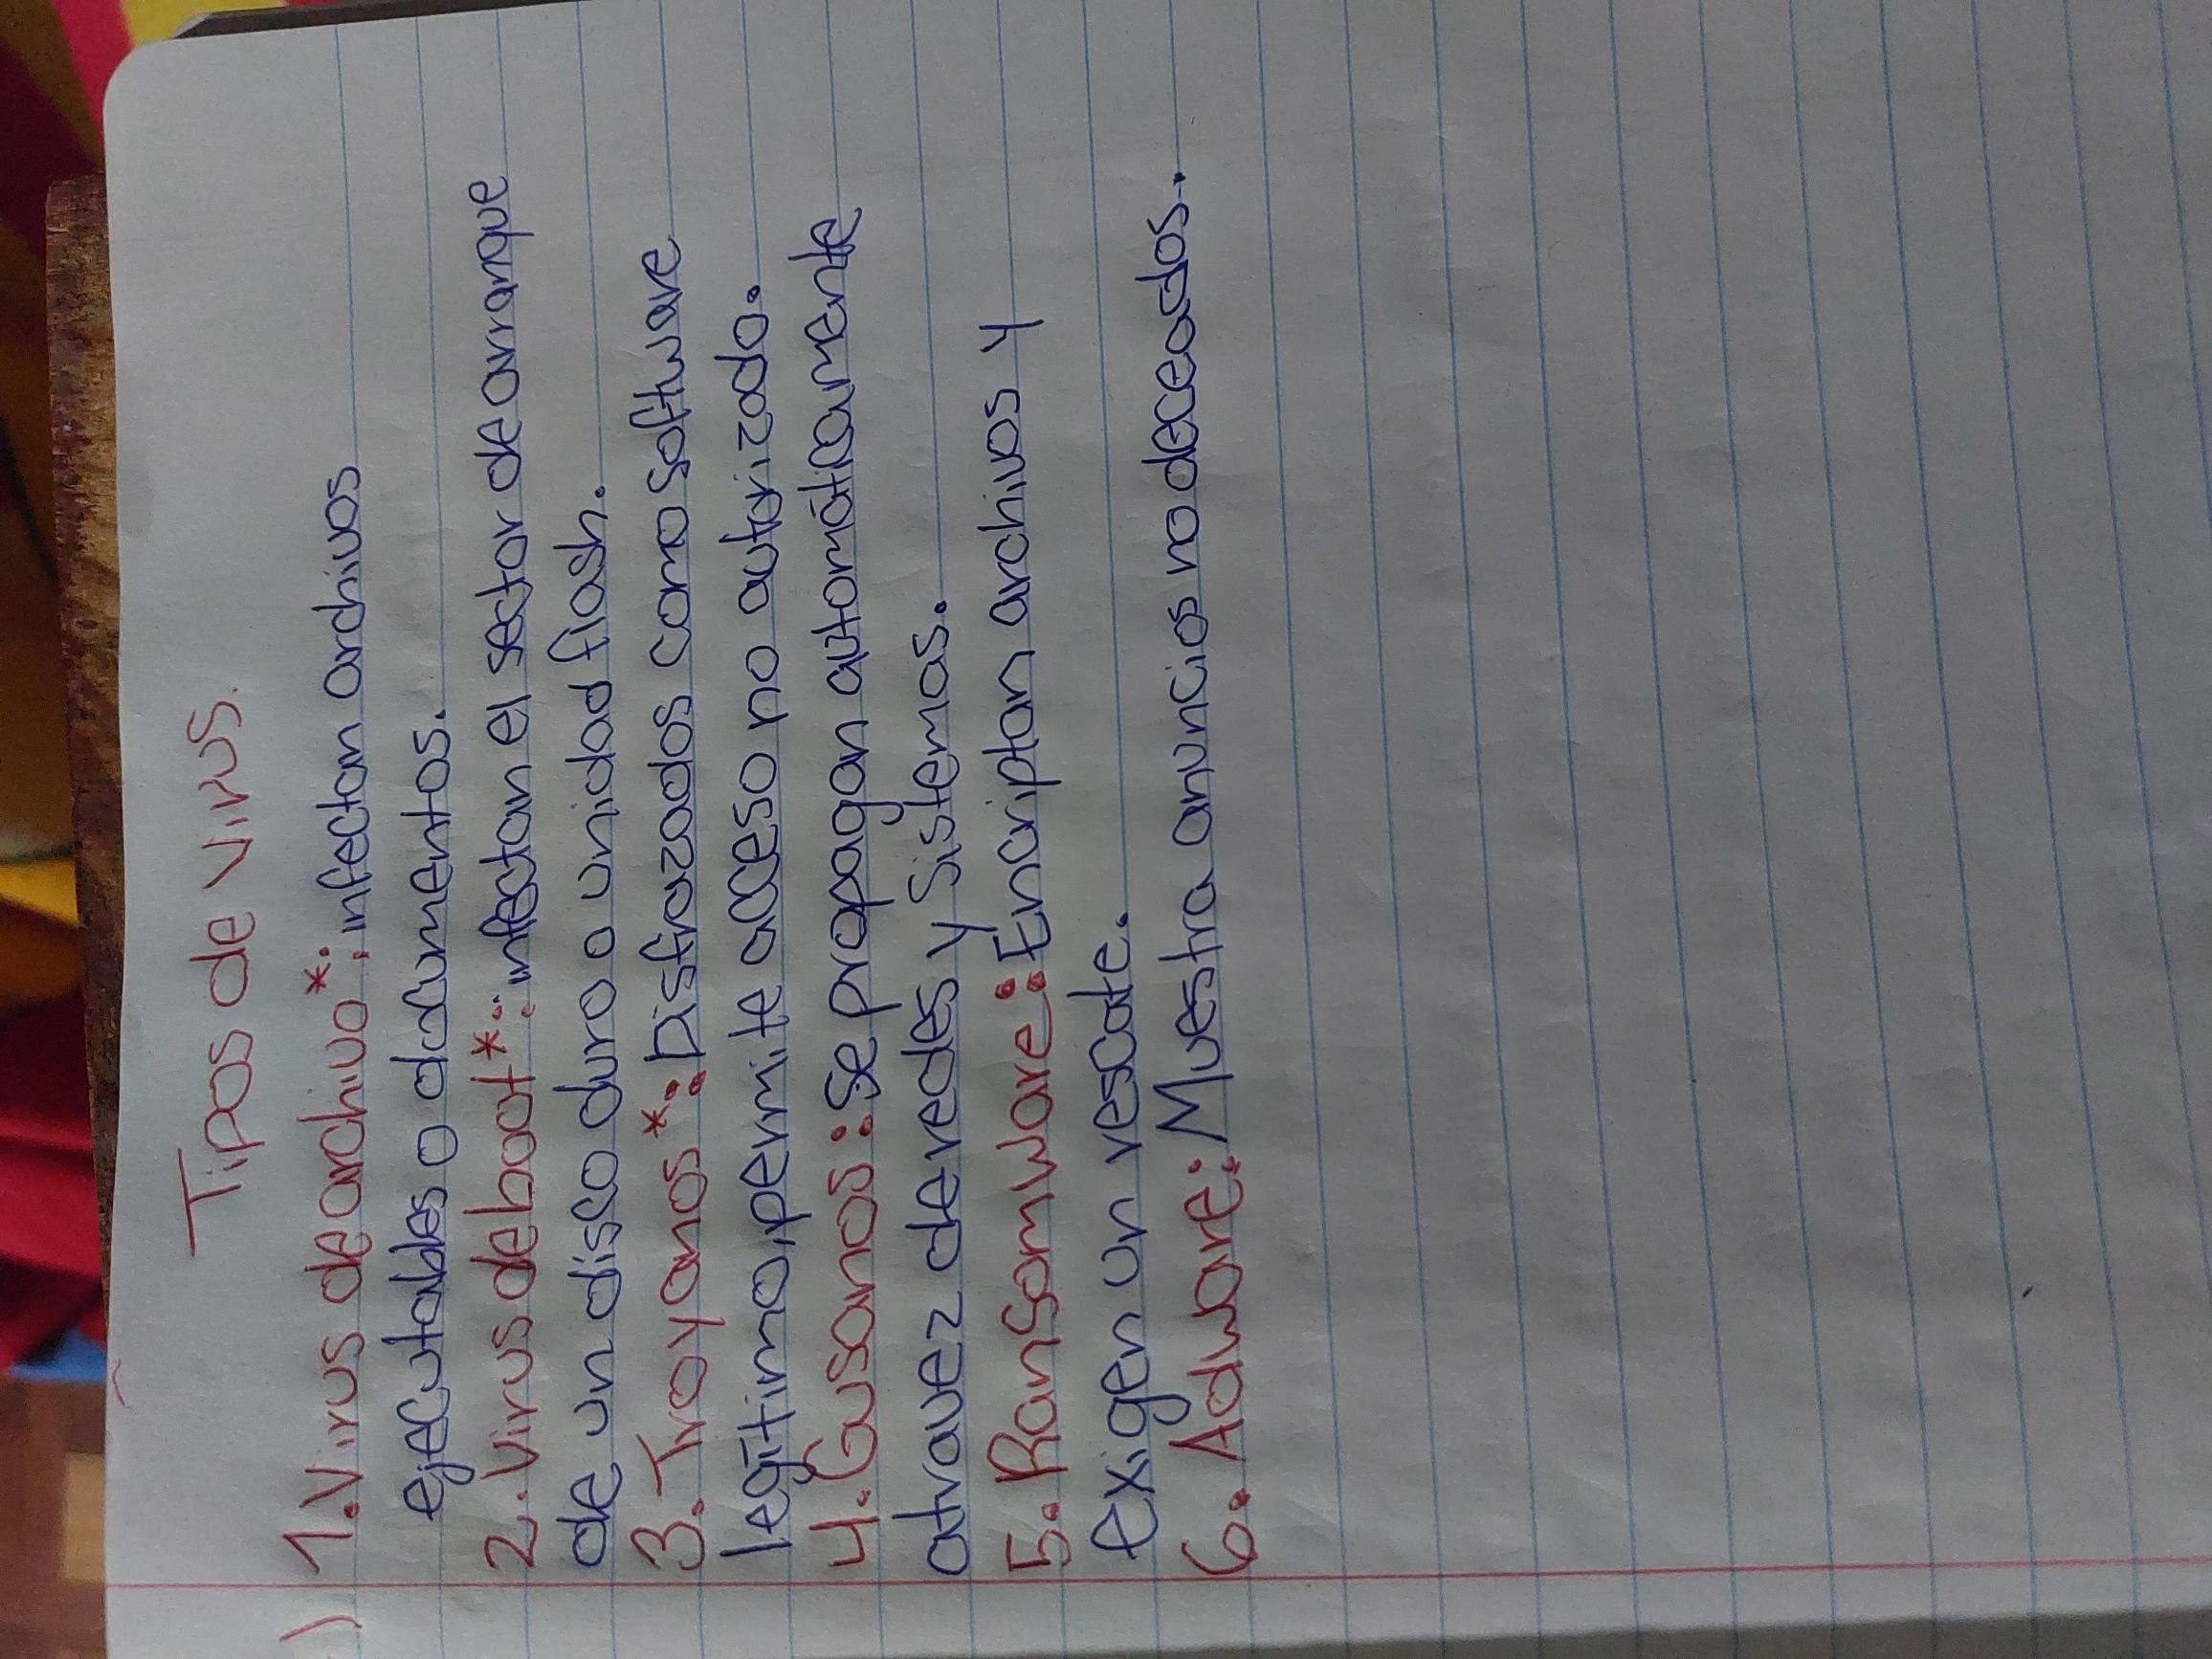 Tipos de virus.
1. Virus de archivo*: infectan archivos
ejecutables o documentos.
2. Virus de boot*: infectan el sector de arranque
de un disco duro o unidad flash.
3. Troyanos*: Disfrazados como software
legítimo, permite acceso no autorizado.
4. Gusanos: Se propagan automáticamente
atravez de redes y Sistemas.
5. Ransomware: Encriptan archivos y
exigen un rescate.
6. Adware: Muestra anuncios no deceados.